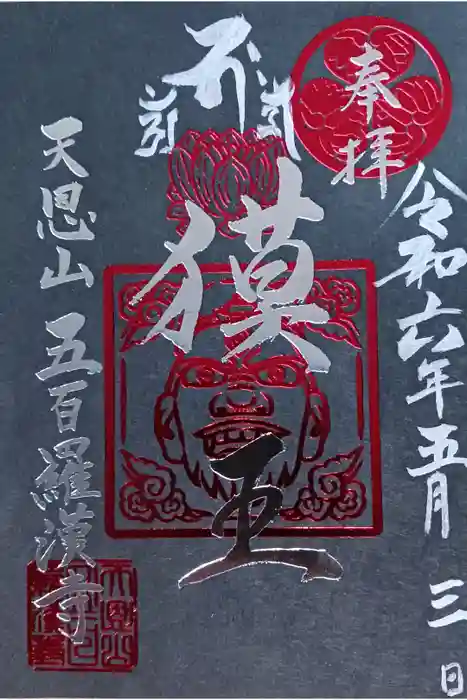 奉拝
令和六年五月三日
獏王
天恩山五百羅漢寺